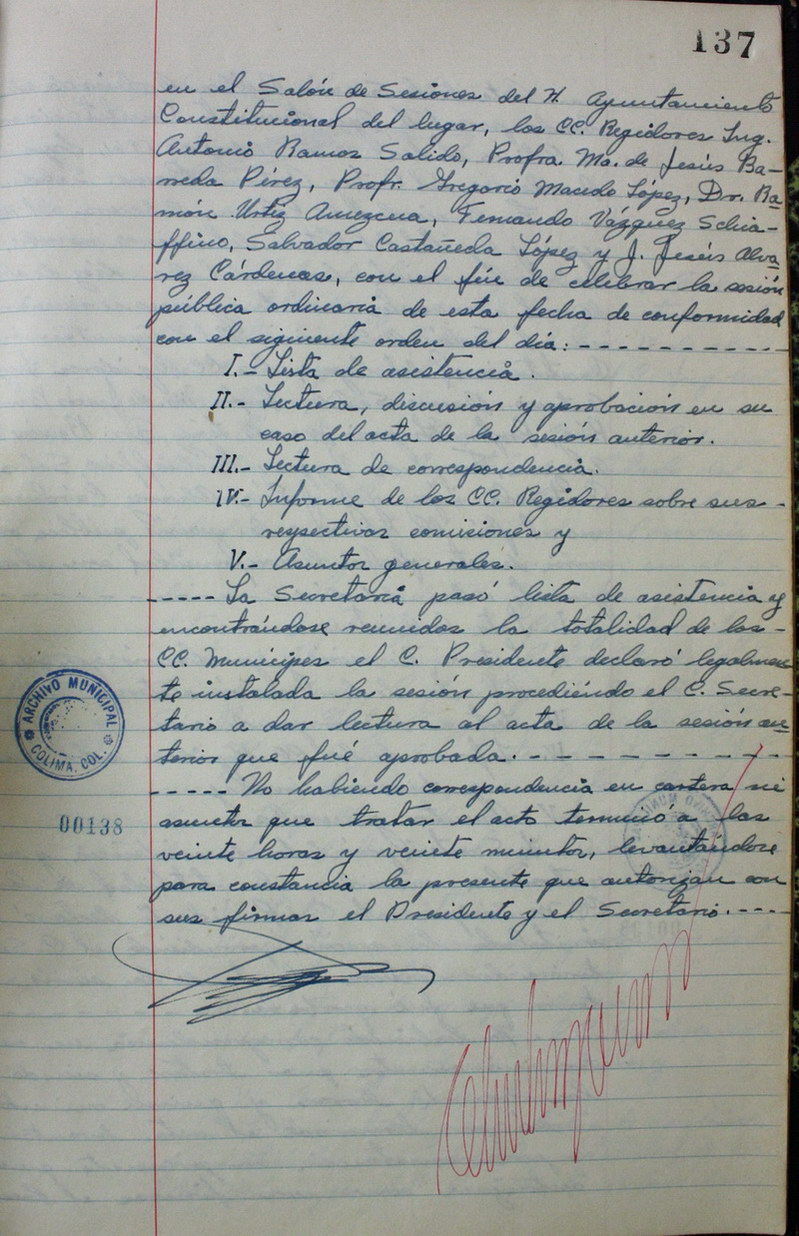 137
en el Salón de Sesiones del H. Ayuntamiento
Constitucional del lugar, los CC. Regidores Ing.
Antonio Ramos Salido, Profra. Ma. de Jesús Ba-
rreda Pérez, Profr. Gregorio Macedo López, Dr. Ra
món Urtiz Amezcua, Fernando Vázquez Schia-
ffino, Salvador Castañeda López y J. Jesús Alva
rez Cárdenas, con el fin de celebrar la sesión
pública ordinaria de esta fecha de conformidad
con el siguiente orden del día: - - - - - - - - - -
I.- Lista de asistencia.
II.- Lectura, discusión y aprobación en su
caso del acta de la sesión anterior.
III.- Lectura de correspondencia.
IV.- Informe de los CC. Regidores sobre sus -
respectivas comisiones y
V.- Asuntos generales.
- - - - - La Secretaría pasó lista de asistencia y
encontrándose reunidos la totalidad de los -
CC. Munícipes el C. Presidente declaró legalmen
te instalada la sesión procediéndo el C. Secre-
tario a dar lectura al acta de la sesión an
terior que fué aprobada. - - - - - - - - - -
- - - - - No habiendo correspondencia en cartera ni
asuntos que tratar el acto terminó a las
veinte horas y veinte minutos, levantándose
para constancia la presente que autorizan con
sus firmas el Presidente y el Secretario. - - - -
ARCHIVO MUNICIPAL
COLIMA, COL.
00138